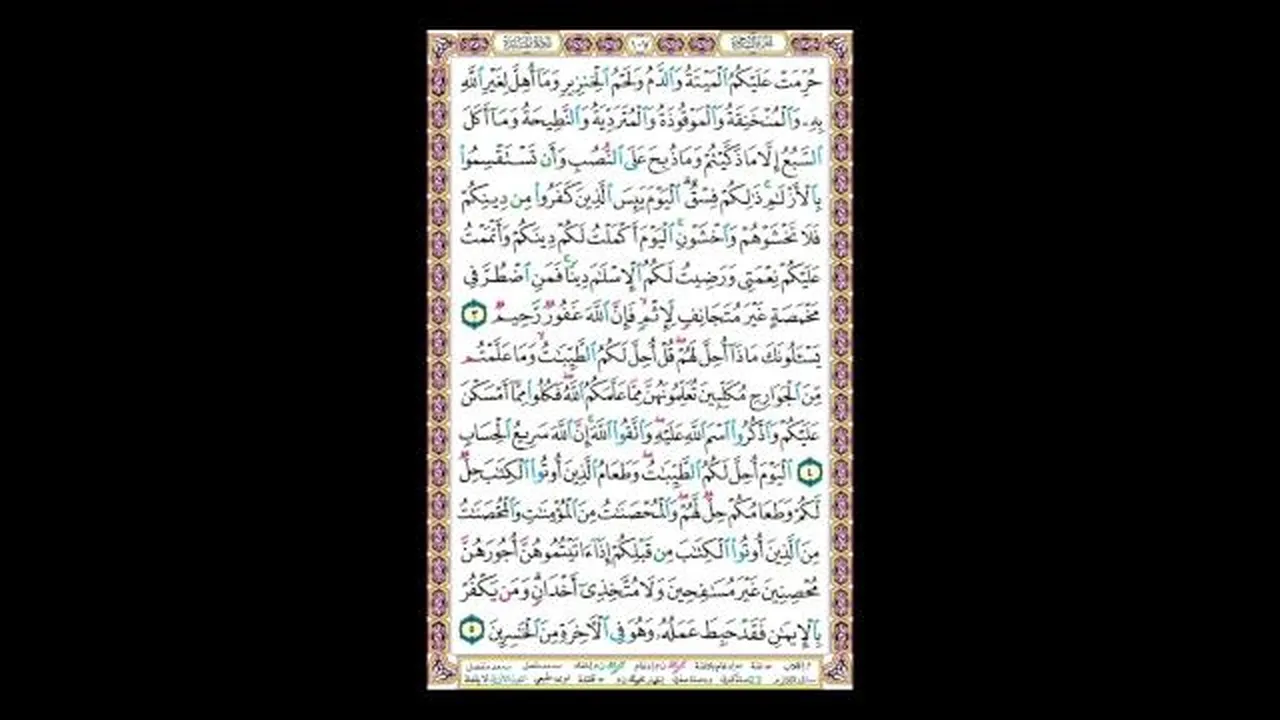 ١٠٧
حُرِّمَتْ عَلَيْكُمُ ٱلْمَيْتَةُ وَٱلدَّمُ وَلَحْمُ ٱلْخِنزِيرِ وَمَآ أُهِلَّ لِغَيْرِ ٱللَّهِ
بِهِۦ وَٱلْمُنْخَنِقَةُ وَٱلْمَوْقُوذَةُ وَٱلْمُتَرَدِّيَةُ وَٱلنَّطِيحَةُ وَمَآ أَكَلَ
ٱلسَّبُعُ إِلَّا مَا ذَكَّيْتُمْ وَمَا ذُبِحَ عَلَى ٱلنُّصُبِ وَأَن تَسْتَقْسِمُوا۟
بِٱلْأَزْلَٰمِ ۚ ذَٰلِكُمْ فِسْقٌ ۗ ٱلْيَوْمَ يَئِسَ ٱلَّذِينَ كَفَرُوا۟ مِن دِينِكُمْ
فَلَا تَخْشَوْهُمْ وَٱخْشَوْنِ ۚ ٱلْيَوْمَ أَكْمَلْتُ لَكُمْ دِينَكُمْ وَأَتْمَمْتُ
عَلَيْكُمْ نِعْمَتِى وَرَضِيتُ لَكُمُ ٱلْإِسْلَٰمَ دِينًا ۚ فَمَنِ ٱضْطُرَّ فِى
مَخْمَصَةٍ غَيْرَ مُتَجَانِفٍ لِّإِثْمٍ ۙ فَإِنَّ ٱللَّهَ غَفُورٌ رَّحِيمٌ ٣
يَسْـَٔلُونَكَ مَاذَآ أُحِلَّ لَهُمْ ۖ قُلْ أُحِلَّ لَكُمُ ٱلطَّيِّبَٰتُ ۙ وَمَا عَلَّمْتُم
مِّنَ ٱلْجَوَارِحِ مُكَلِّبِينَ تُعَلِّمُونَهُنَّ مِمَّا عَلَّمَكُمُ ٱللَّهُ ۖ فَكُلُوا۟ مِمَّآ أَمْسَكْنَ
عَلَيْكُمْ وَٱذْكُرُوا۟ ٱسْمَ ٱللَّهِ عَلَيْهِ ۖ وَٱتَّقُوا۟ ٱللَّهَ ۚ إِنَّ ٱللَّهَ سَرِيعُ ٱلْحِسَابِ
٤ ٱلْيَوْمَ أُحِلَّ لَكُمُ ٱلطَّيِّبَٰتُ ۖ وَطَعَامُ ٱلَّذِينَ أُوتُوا۟ ٱلْكِتَٰبَ حِلٌّ
لَّكُمْ وَطَعَامُكُمْ حِلٌّ لَّهُمْ ۖ وَٱلْمُحْصَنَٰتُ مِنَ ٱلْمُؤْمِنَٰتِ وَٱلْمُحْصَنَٰتُ
مِنَ ٱلَّذِينَ أُوتُوا۟ ٱلْكِتَٰبَ مِن قَبْلِكُمْ إِذَآ ءَاتَيْتُمُوهُنَّ أُجُورَهُنَّ
مُحْصِنِينَ غَيْرَ مُسَٰفِحِينَ وَلَا مُتَّخِذِىٓ أَخْدَانٍ ۗ وَمَن يَكْفُرْ
بِٱلْإِيمَٰنِ فَقَدْ حَبِطَ عَمَلُهُۥ وَهُوَ فِى ٱلْـَٔاخِرَةِ مِنَ ٱلْخَٰسِرِينَ ٥